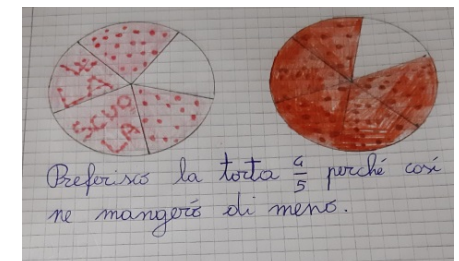 W
LA
SCUO
LA
Preferisco la torta 4/5 perché così
ne mangerò di meno.